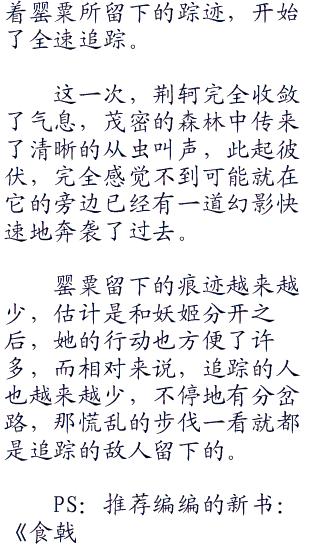 着罂粟所留下的踪迹，开始
了全速追踪。
这一次，荆轲完全收敛
了气息，茂密的森林中传来
了清晰的从虫叫声，此起彼
伏，完全感觉不到可能就在
它的旁边已经有一道幻影快
速地奔袭了过去。
罂粟留下的痕迹越来越
少，估计是和妖姬分开之
后，她的行动也方便了许
多，而相对来说，追踪的人
也越来越少，不停地有分岔
路，那慌乱的步伐一看就都
是追踪的敌人留下的。
PS：推荐编编的新书：
《食戟